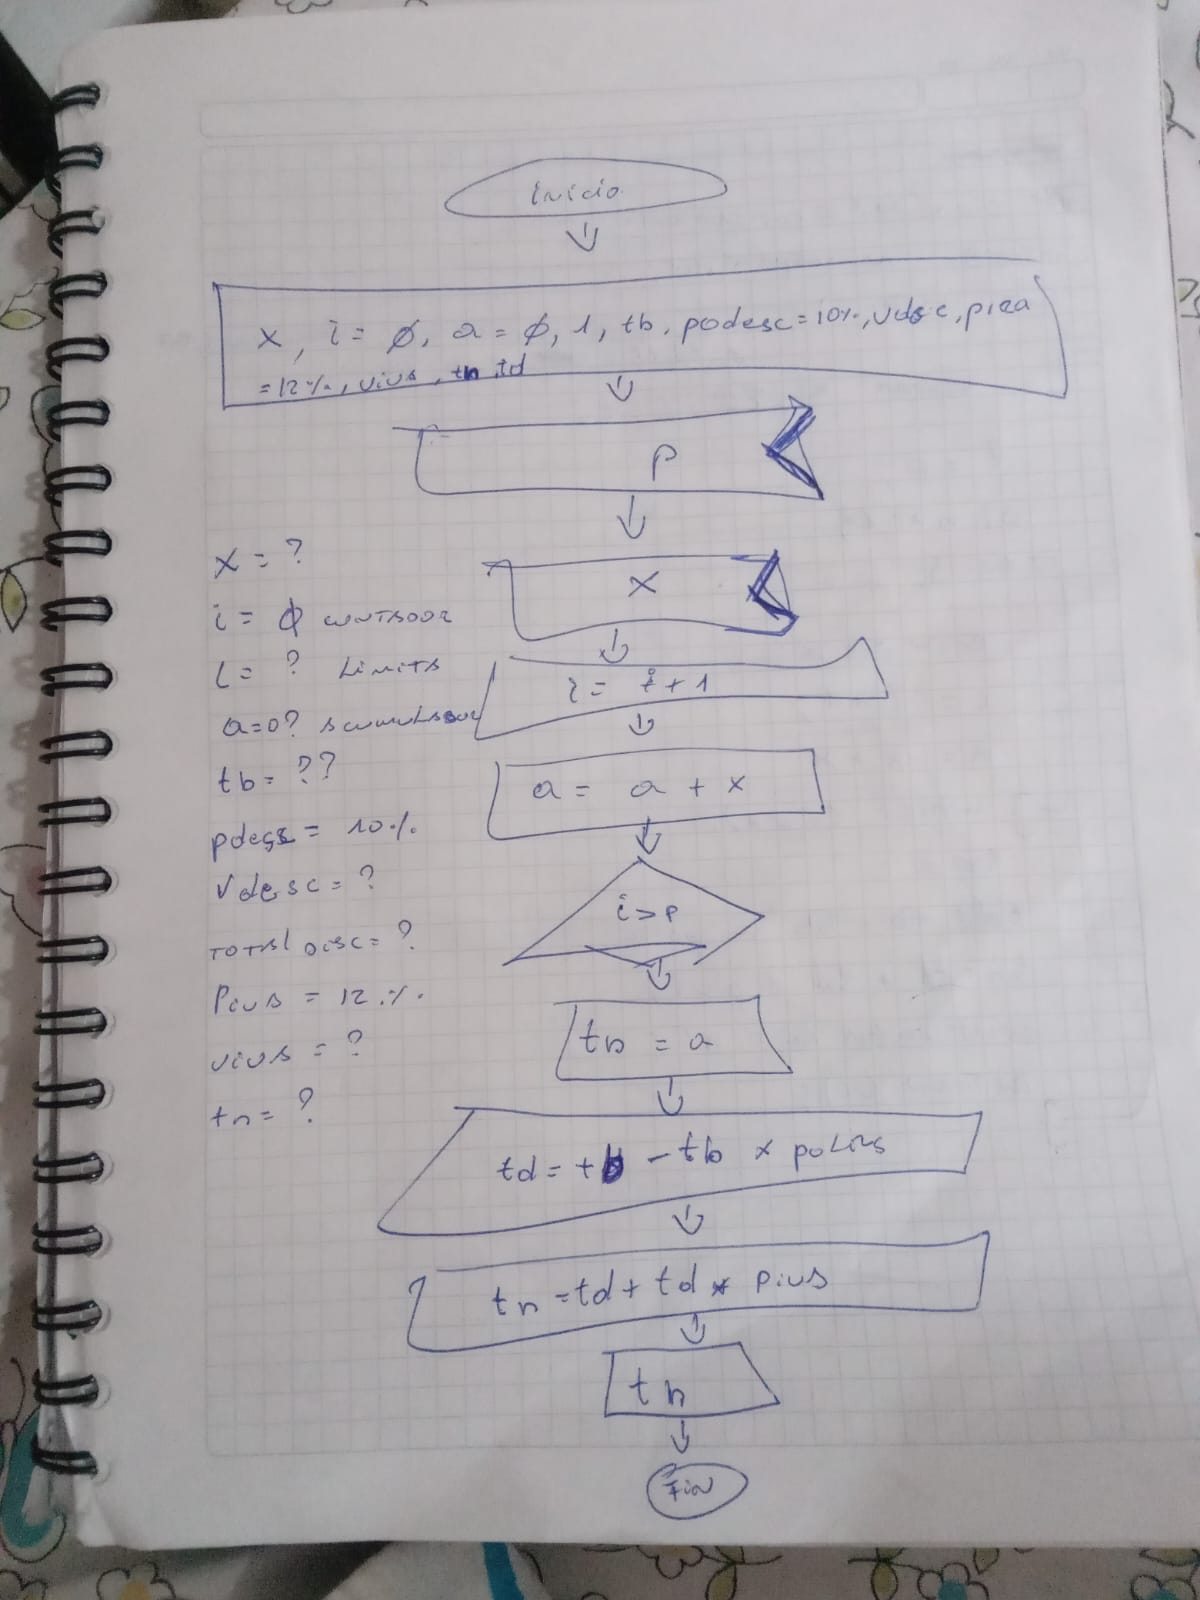 inicio
x, i = ø, a = ø, 1, tb, podesc = 10%, vdsc, piva
= 12%, viva, tn, td
p
x
i = i + 1
a = a + x
i > p
tb = a
td = tb - tb x
tn = td + td * piva
tn
Fin
x = ?
i = ø contador
L = ? Limita
a = 0? acumulador
tb = ??
pdesc = 10%
Vdesc = ?
TOTAL Disc = ?
Piva = 12%
viva = ?
tn = ?